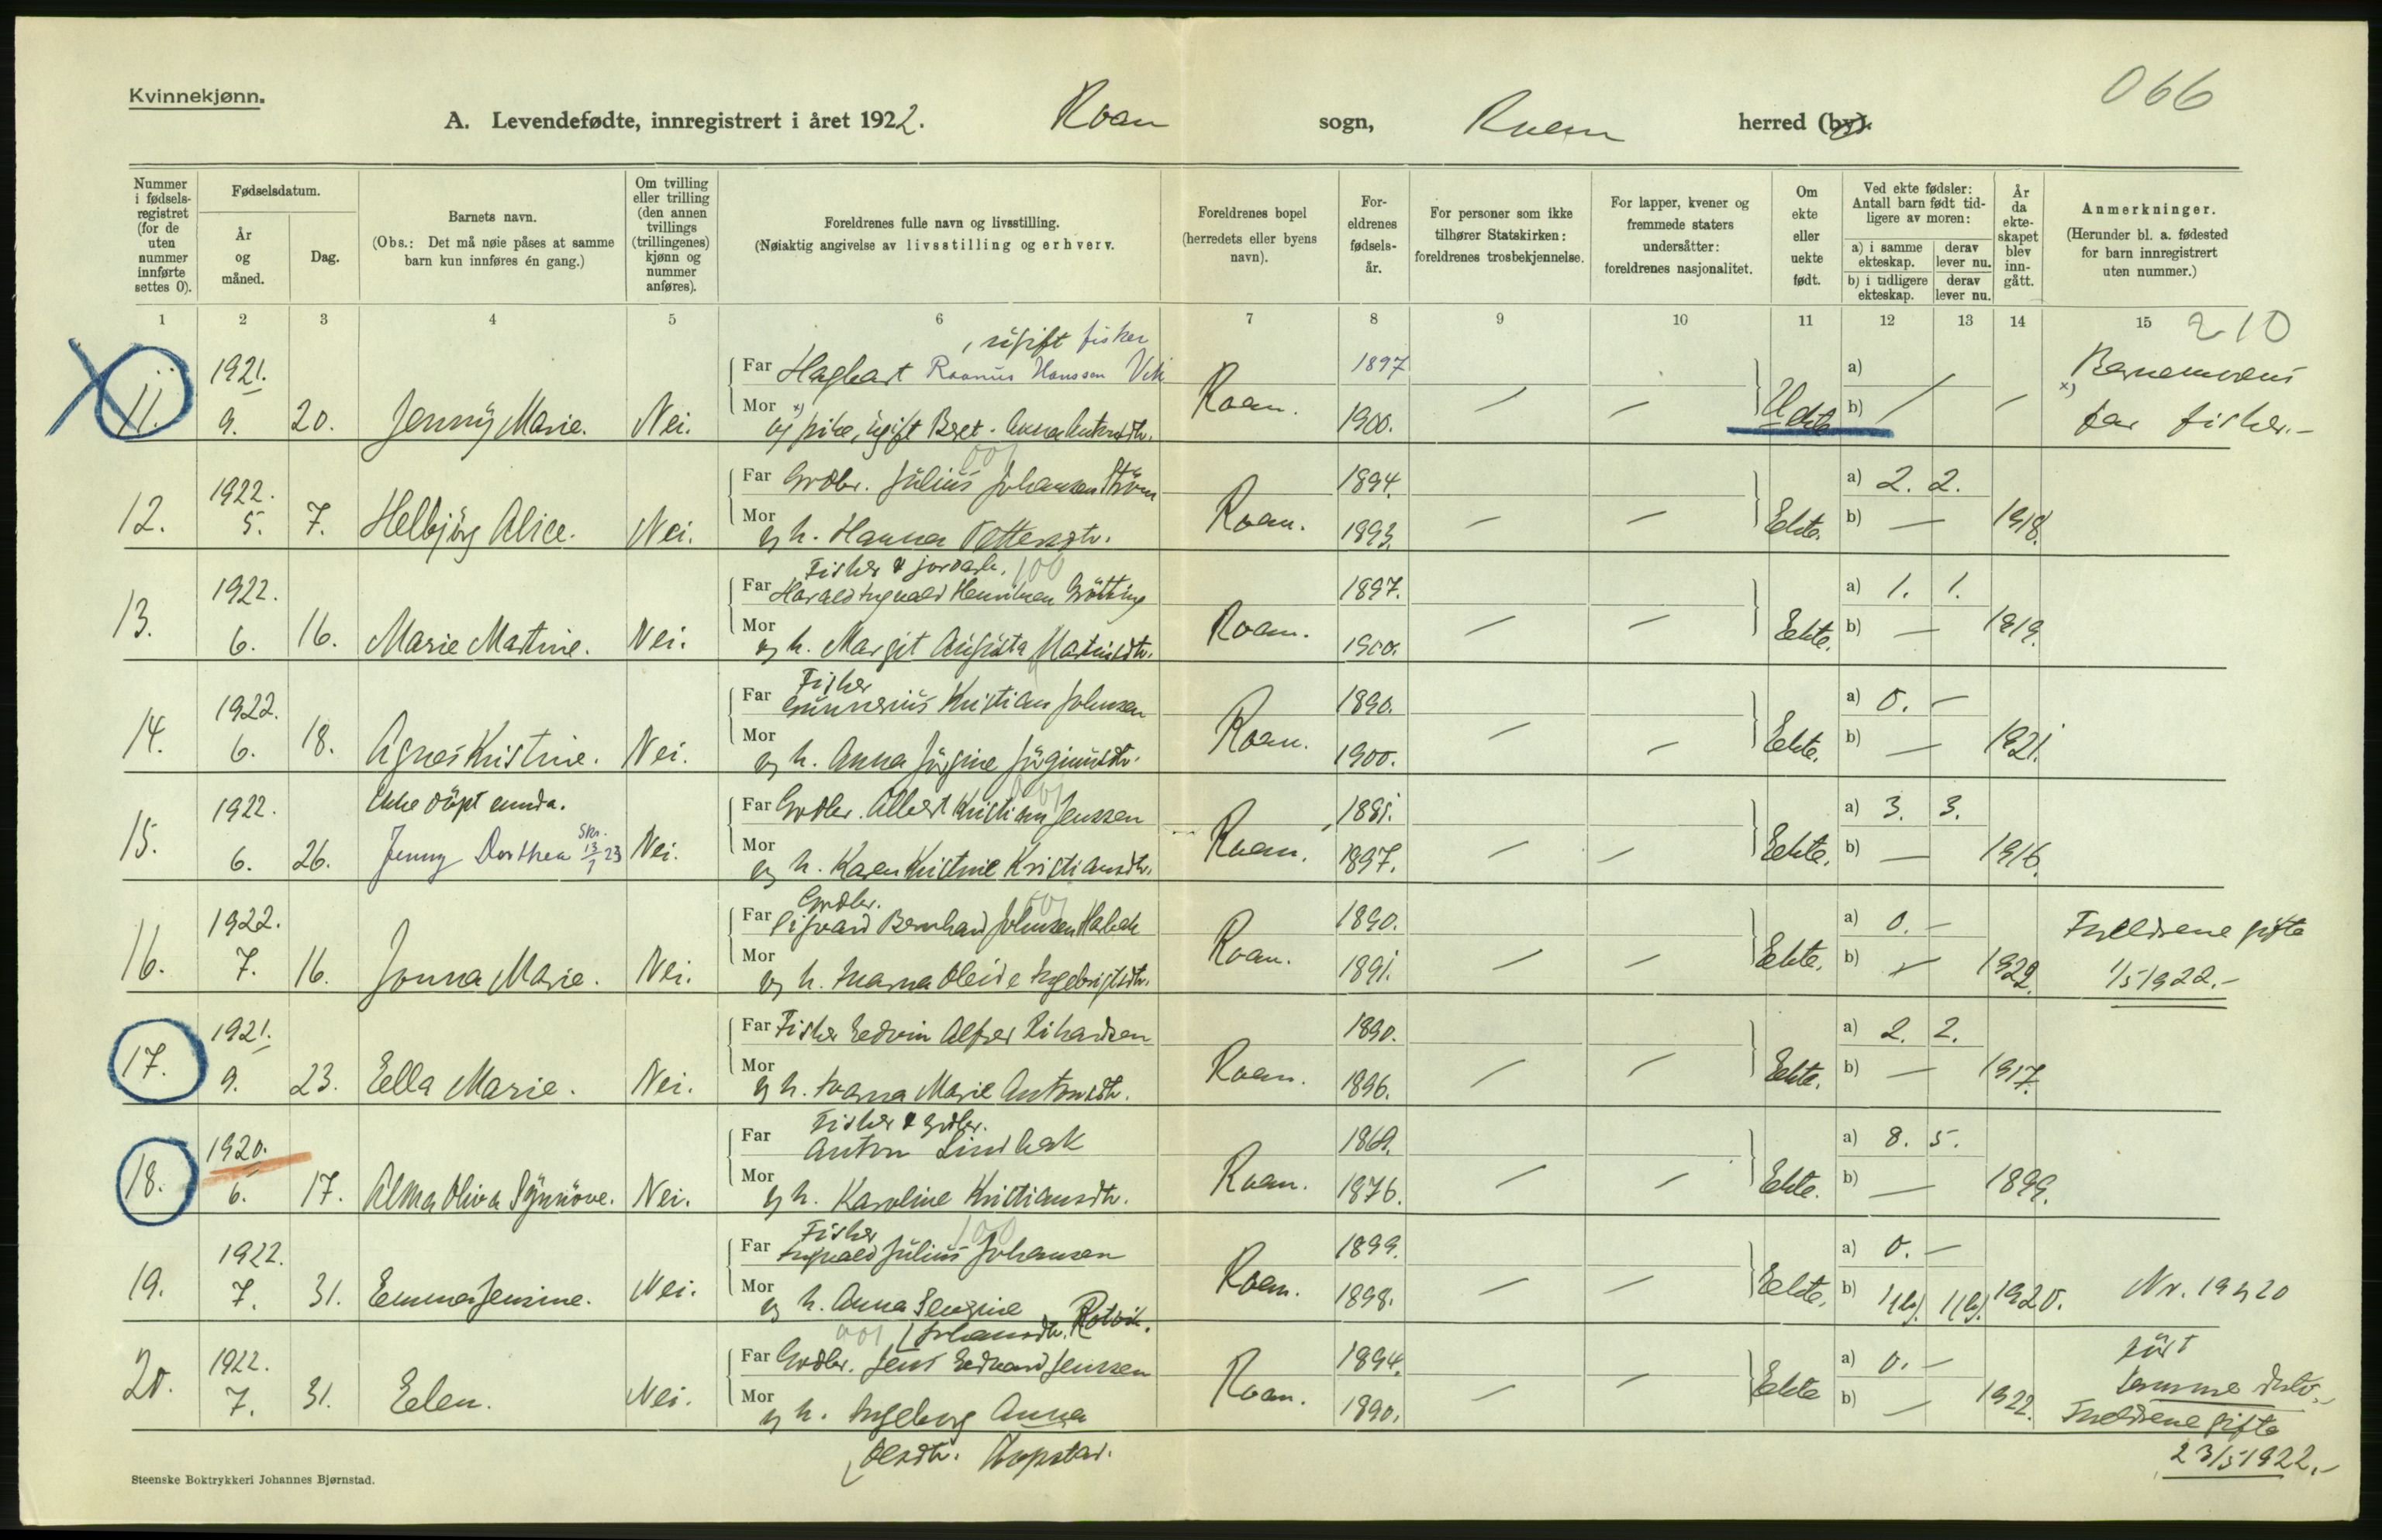 066
Kvinnekjønn.
A. Levendefødte, innregistrert i året 1922. Roan sogn, Roan herred (by).
Nummer i fødsels-registret (for de uten nummer innførte settes 0). Fødselsdatum. År og måned. Dag. Barnets navn. (Obs.: Det må nøie påses at samme barn kun innføres én gang.) Om tvilling eller trilling (den annen tvillings (trillingenes) kjønn og nummer anføres). Foreldrenes fulle navn og livsstilling. (Nøiaktig angivelse av livsstilling og erhverv. Foreldrenes bopel (herredets eller byens navn). For-eldrenes fødsels-år. For personer som ikke tilhører Statskirken: foreldrenes trosbekjennelse. For lapper, kvener og fremmede staters undersåtter: foreldrenes nasjonalitet. Om ekte eller uekte født. Ved ekte fødsler: Antall barn født tid-ligere av moren: a) i samme ekteskap. derav lever nu. b) i tidligere ekteskap. derav lever nu. År da ekte-skapet blev inn-gått. Anmerkninger. (Herunder bl. a. fødested for barn innregistrert uten nummer.)
1 2 3 4 5 6 7 8 9 10 11 12 13 14 15 210
, ugift fisker
11. 1921. 9. 20. Jenny Marie. Nei. Far Hagbart Hanssen Vik 1897 Roan. a)
Mor x) og pike, ugift Beret-Anna 1900. Uekte b) x) Barnemorens far fisker.-
001
12. 1922. 5. 7. Helbjörg Alice. Nei. Far Grdbr. Julius Johansen Ström Roan. 1894. Ekte. a) 2. 2.
Mor og h. Hanna Pettersdtr. 1893. b) — 1918.
Fisker & jordarb. 100
13. 1922. 6. 16. Marie Martine. Nei. Far Harald Ingvald Henriksen Roan. 1897. Ekte. a) 1. 1.
Mor og h. Margit Augusta 1900. b) — 1919.
Fisker
14. 1922. 6. 18. Agnes Kristine. Nei. Far Gunnerius Kristian Johnsen Roan. 1890. Ekte. a) 0. —
Mor og h. Anna Jörgine 1900. b) — 1921.
Ikke döpt ennda. 001
15. 1922. 6. 26. Jenny Dorthea Skr. 13/1 23 Nei. Far Grdbr. Albert Kristian Jenssen Roan. 1881. Ekte. a) 3. 3.
Mor og h. Karen Kristine Kristiansdtr. 1897. b) — 1916.
Grdbr. 001
16. 1922. 7. 16. Jonna Marie. Nei. Far Sigvard Bernhard Johnsen Roan. 1890. Ekte. a) 0. — Foreldrene gifte
Mor og h. Oleide Ingebrigtsdtr. 1891. b) — 1922. 1/5 1922.-
17. 1921. 9. 23. Ella Marie. Nei. Far Fisker Edvin Alfred Rikardsen Roan. 1890. Ekte. a) 2. 2.
Mor og h. Marie Antonsdtr. 1896. b) — 1917.
Fisker & grdbr.
18. 1920. 6. 17. Alma Oliva Synnöve. Nei. Far Anton Lindbak Roan. 1869. Ekte. a) 8. 5.
Mor og h. Karoline Kristiansdtr. 1876. b) — 1899.
Fisker 100
19. 1922. 7. 31. Emma Jensine. Nei. Far Ingvald Julius Johansen Roan. 1899. Ekte. a) 0. —
Mor og h. Anna 1898. b) 1920. Nr. 19 & 20
Johansdtr. 001
20. 1922. 7. 31. Elen. Nei. Far Grdbr. Jens Edvard Jenssen Roan. 1894. Ekte a) 0. — född samme dato.-
Mor og h. Ingeborg Anna 1890. b) — 1922. Foreldrene gifte
Olsdtr. Hopstad. 23/5 1922.-
Steenske Boktrykkeri Johannes Bjørnstad.